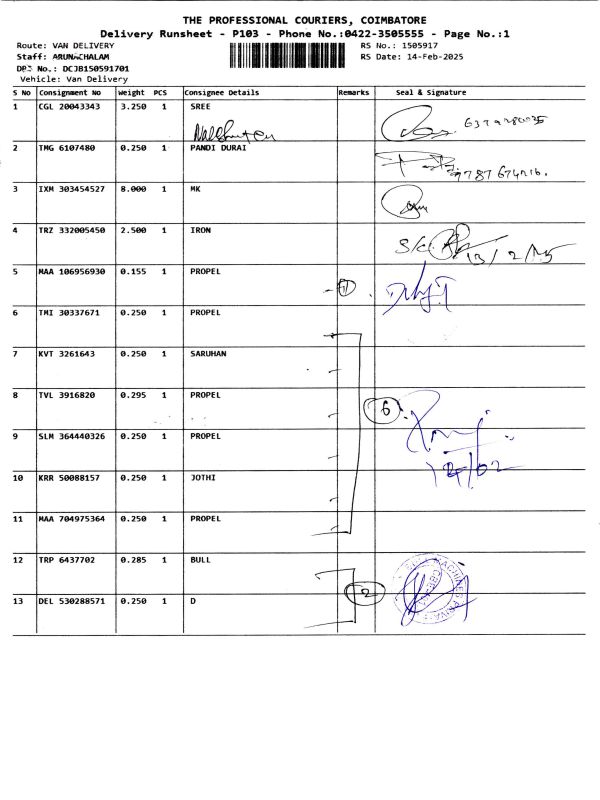 THE PROFESSIONAL COURIERS, COIMBATORE
Delivery Runsheet - P103 - Phone No.:0422-3505555 - Page No.:1
Route: VAN DELIVERY RS No.: 1505917
Staff: ARUNACHALAM RS Date: 14-Feb-2025
No.: DCJB150591701
Vehicle: Van Delivery
S No Consignment No Weight PCS Consignee Details Remarks Seal & Signature
1 CGL 20043343 3.250 1 SREE
2 TMG 6107480 0.250 1 PANDI DURAI
3 IXM 303454527 8.000 1 MK
4 TRZ 332005450 2.500 1 IRON
5 MAA 106956930 0.155 1 PROPEL
6 TMI 30337671 0.250 1 PROPEL
7 KVT 3261643 0.250 1 SARUHAN
8 TVL 3916820 0.295 1 PROPEL
6
9 SLM 364440326 0.250 1 PROPEL
10 KRR 50088157 0.250 1 JOTHI
11 MAA 704975364 0.250 1 PROPEL
12 TRP 6437702 0.285 1 BULL
2
13 DEL 530288571 0.250 1 D